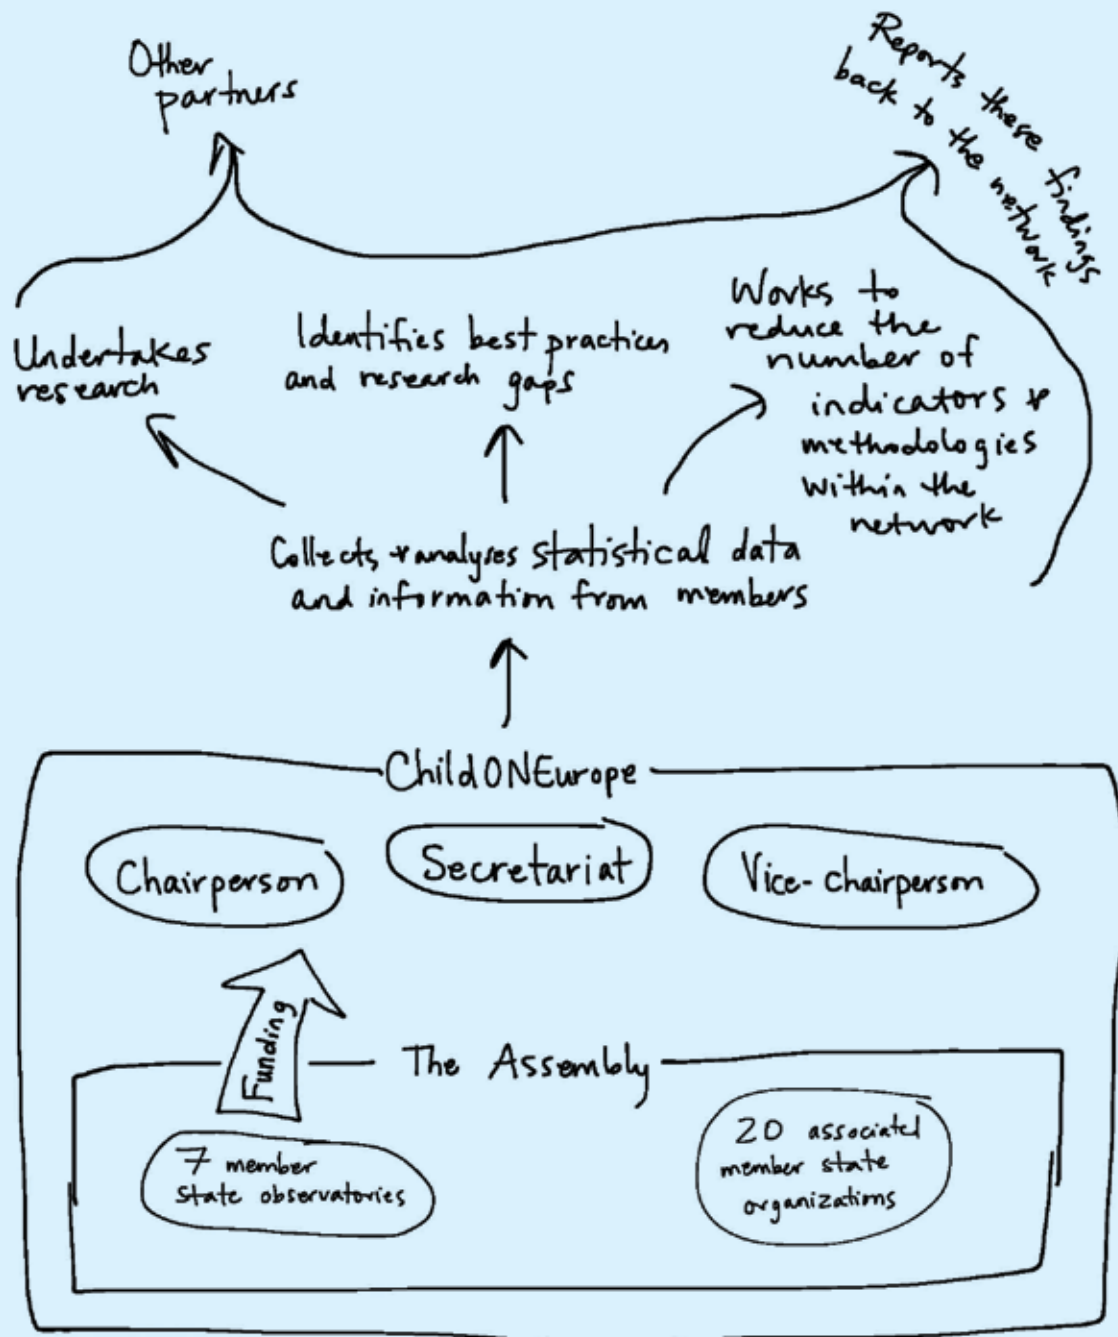 Other
partners
Reports these findings
back to the network
Undertakes
research
Identifies best practices
and research gaps
Works to
reduce the
number of
indicators &
methodologies
within the
network
Collects & analyses statistical data
and information from members
ChildONEurope
Chairperson
Secretariat
Vice-chairperson
Funding
The Assembly
7 member
state observatories
20 associated
member state
organizations